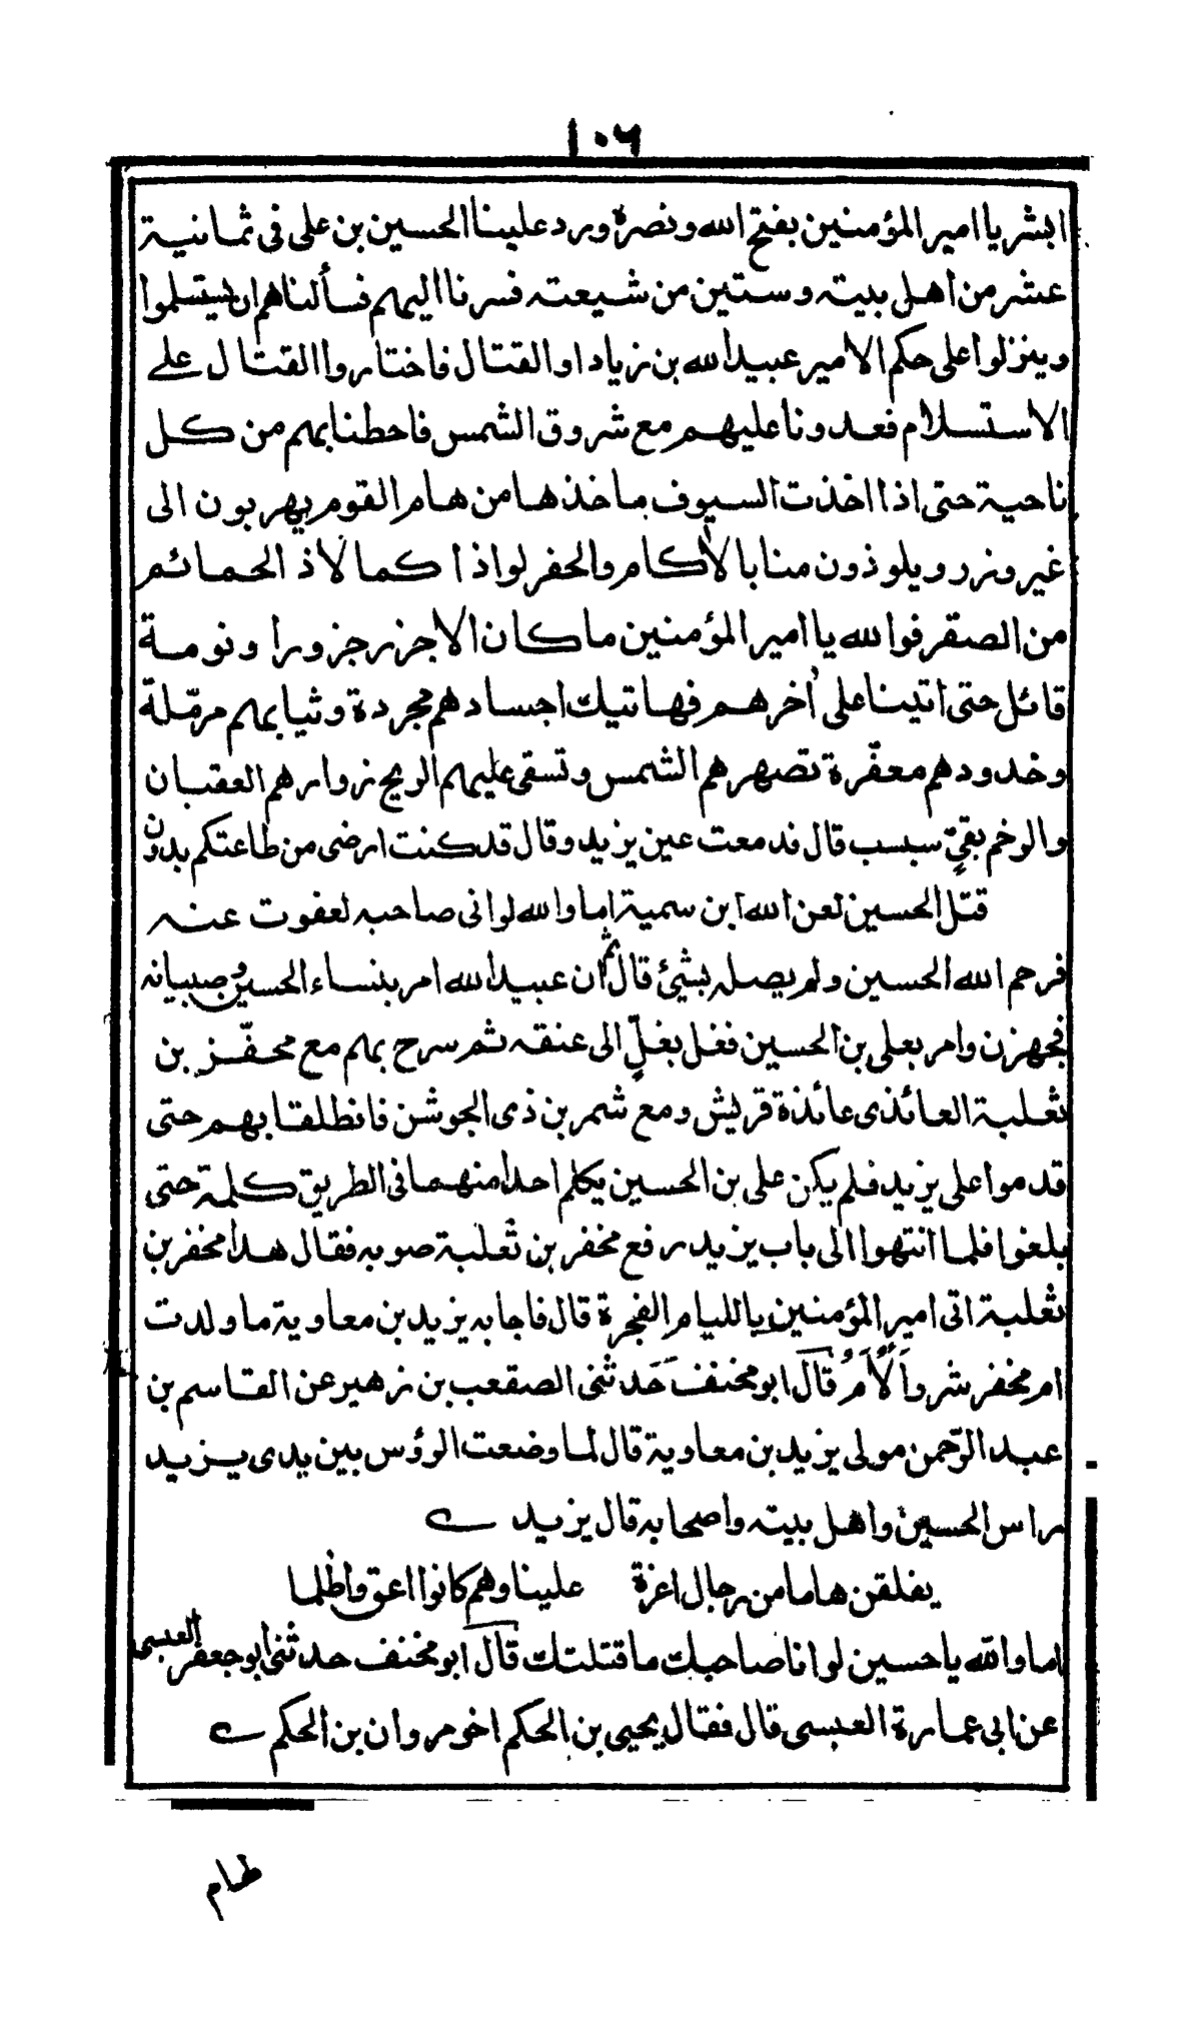 ١٠٦
ابشر يا امير المؤمنين بفتح الله ونصره ورد علينا الحسين بن على فى ثمانية
عشر من اهل بيته وستين من شيعته فسرنا اليهم فسألناهم ان يستسلموا
وينزلوا على حكم الامير عبيد الله بن زياد او القتال فاختاروا القتال على
الاستسلام فعدونا عليهم مع شروق الشمس فاحطنا بهم من كل
ناحية حتى اذا اخذت السيوف ماخذها من هام القوم يهربون الى
غير وزر ويلوذون منا بالأكام والحفر لواذا كما لاذ الحمائم
من الصقر فوالله يا امير المؤمنين ما كان الا جزر جزورا ونومة
قائل حتى اتينا على أخرهم فهاتيك اجسادهم مجردة وثيابهم مرمّلة
وخدودهم معفّرة تصهرهم الشمس وتسقى عليهم الريح زوارهم العقبان
والرخم بقيٍّ سبسب قال فدمعت عين يزيد وقال قد كنت ارضى من طاعتكم بدون
قتل الحسين لعن الله ابن سمية اما والله لو انى صاحبه لعفوت عنه
فرحم الله الحسين ولم يصله بشئ قال ثم ان عبيد الله امر بنساء الحسين وصبيانه
فجهزن وامر بعلى بن الحسين فغل بغلٍّ الى عنقه ثم سرح بهم مع محفّز بن
ثعلبة العائذى عائذة قريش ومع شمر بن ذى الجوشن فانطلقا بهم حتى
قدموا على يزيد فلم يكن على بن الحسين يكلم احدا منهما فى الطريق كلمة حتى
بلغوا فلما انتهوا الى باب يزيد رفع مخفر بن ثعلبة صوبه فقال هذا مخفر بن
ثعلبة اتى امير المؤمنين باللیام الفجرة قال فاجابه يزيد بن معاوية ما ولدت
ام مخفر شر وَألْأمُ قال ابو مخنف حدثنى الصقعب بن زهير عن القاسم بن
عبد الرّحمن مولى يزيد بن معاوية قال لما وضعت الرؤس بين يدى يزيد
راس الحسين واهل بيته واصحابه قال يزيد ے
يفلقن هاما من رجال اعزة علينا وهم كانوا اعق واظلما
اما والله يا حسين لو انا صاحبك ما قتلتك قال ابو مخنف حدثنى ابو جعفر العبسى
عن ابى عمارة العبسى قال فقال يحيى بن الحكم اخو مروان بن الحكم ے
لهام